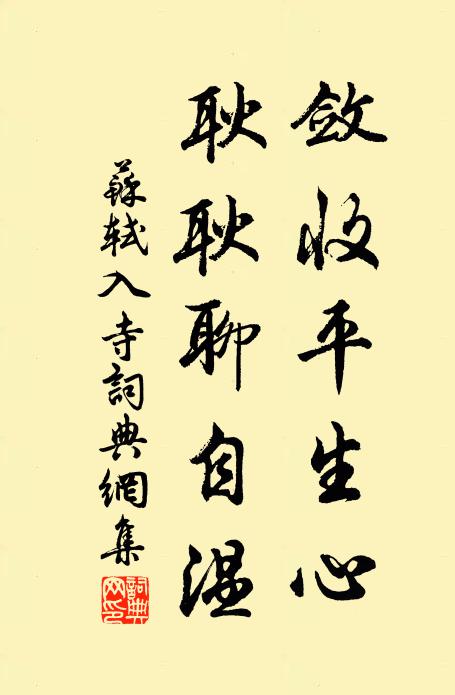 斂收平生心
耿耿聊自温
蘇軾入寺詞典網集
詞典網印